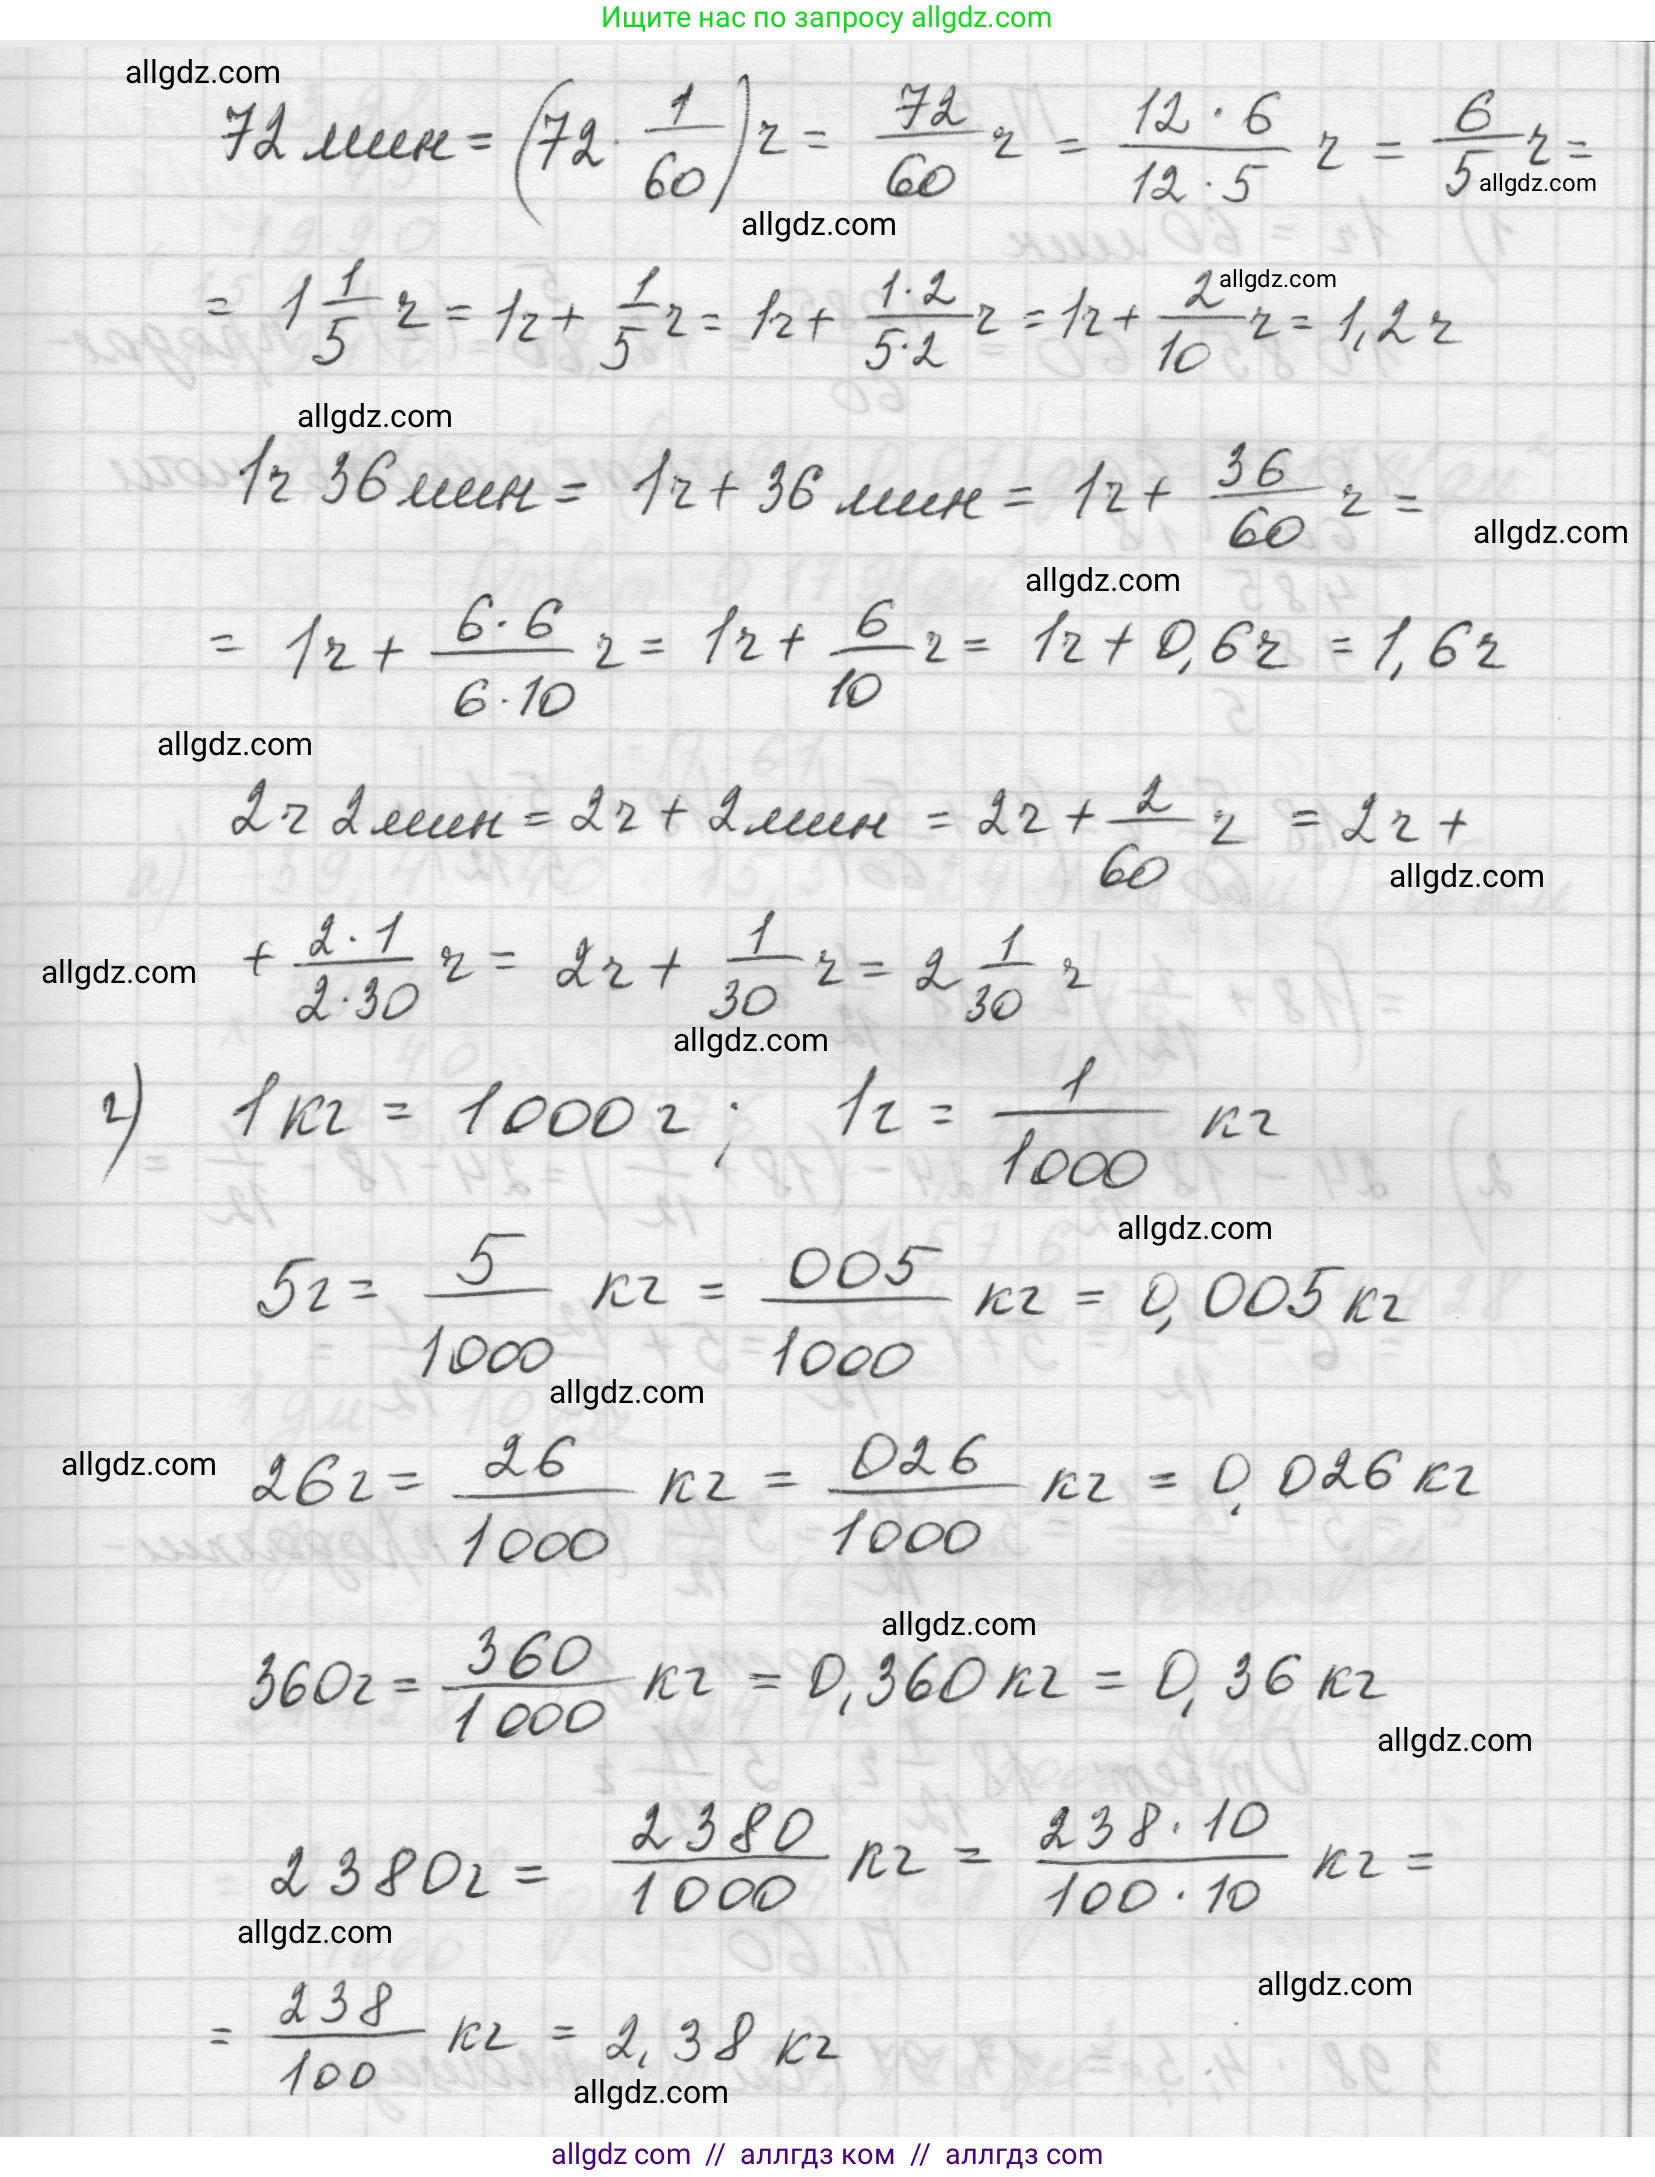 Ищите нас по запросу allgdz.com
allgdz.com
72 мин = (72 · 1/60) ч = 72/60 ч = (12 · 6)/(12 · 5) ч = 6/5 ч =
allgdz.com
allgdz.com
allgdz.com
= 1 1/5 ч = 1ч + 1/5 ч = 1ч + (1·2)/(5·2) ч = 1ч + 2/10 ч = 1,2 ч
allgdz.com
1ч 36 мин = 1ч + 36 мин = 1ч + 36/60 ч =
allgdz.com
allgdz.com
= 1ч + (6·6)/(6·10) ч = 1ч + 6/10 ч = 1ч + 0,6ч = 1,6ч
allgdz.com
2ч 2 мин = 2ч + 2 мин = 2ч + 2/60 ч = 2ч +
allgdz.com
allgdz.com
+ (2·1)/(2·30) ч = 2ч + 1/30 ч = 2 1/30 ч
allgdz.com
г) 1 кг = 1000 г ; 1г = 1/1000 кг
allgdz.com
5г = 5/1000 кг = 005/1000 кг = 0,005 кг
allgdz.com
allgdz.com
26г = 26/1000 кг = 026/1000 кг = 0,026 кг
allgdz.com
360г = 360/1000 кг = 0,360 кг = 0,36 кг
allgdz.com
2380г = 2380/1000 кг = (238·10)/(100·10) кг =
allgdz.com
allgdz.com
= 238/100 кг = 2,38 кг
allgdz.com
allgdz com // аллгдз ком // аллгтдз com